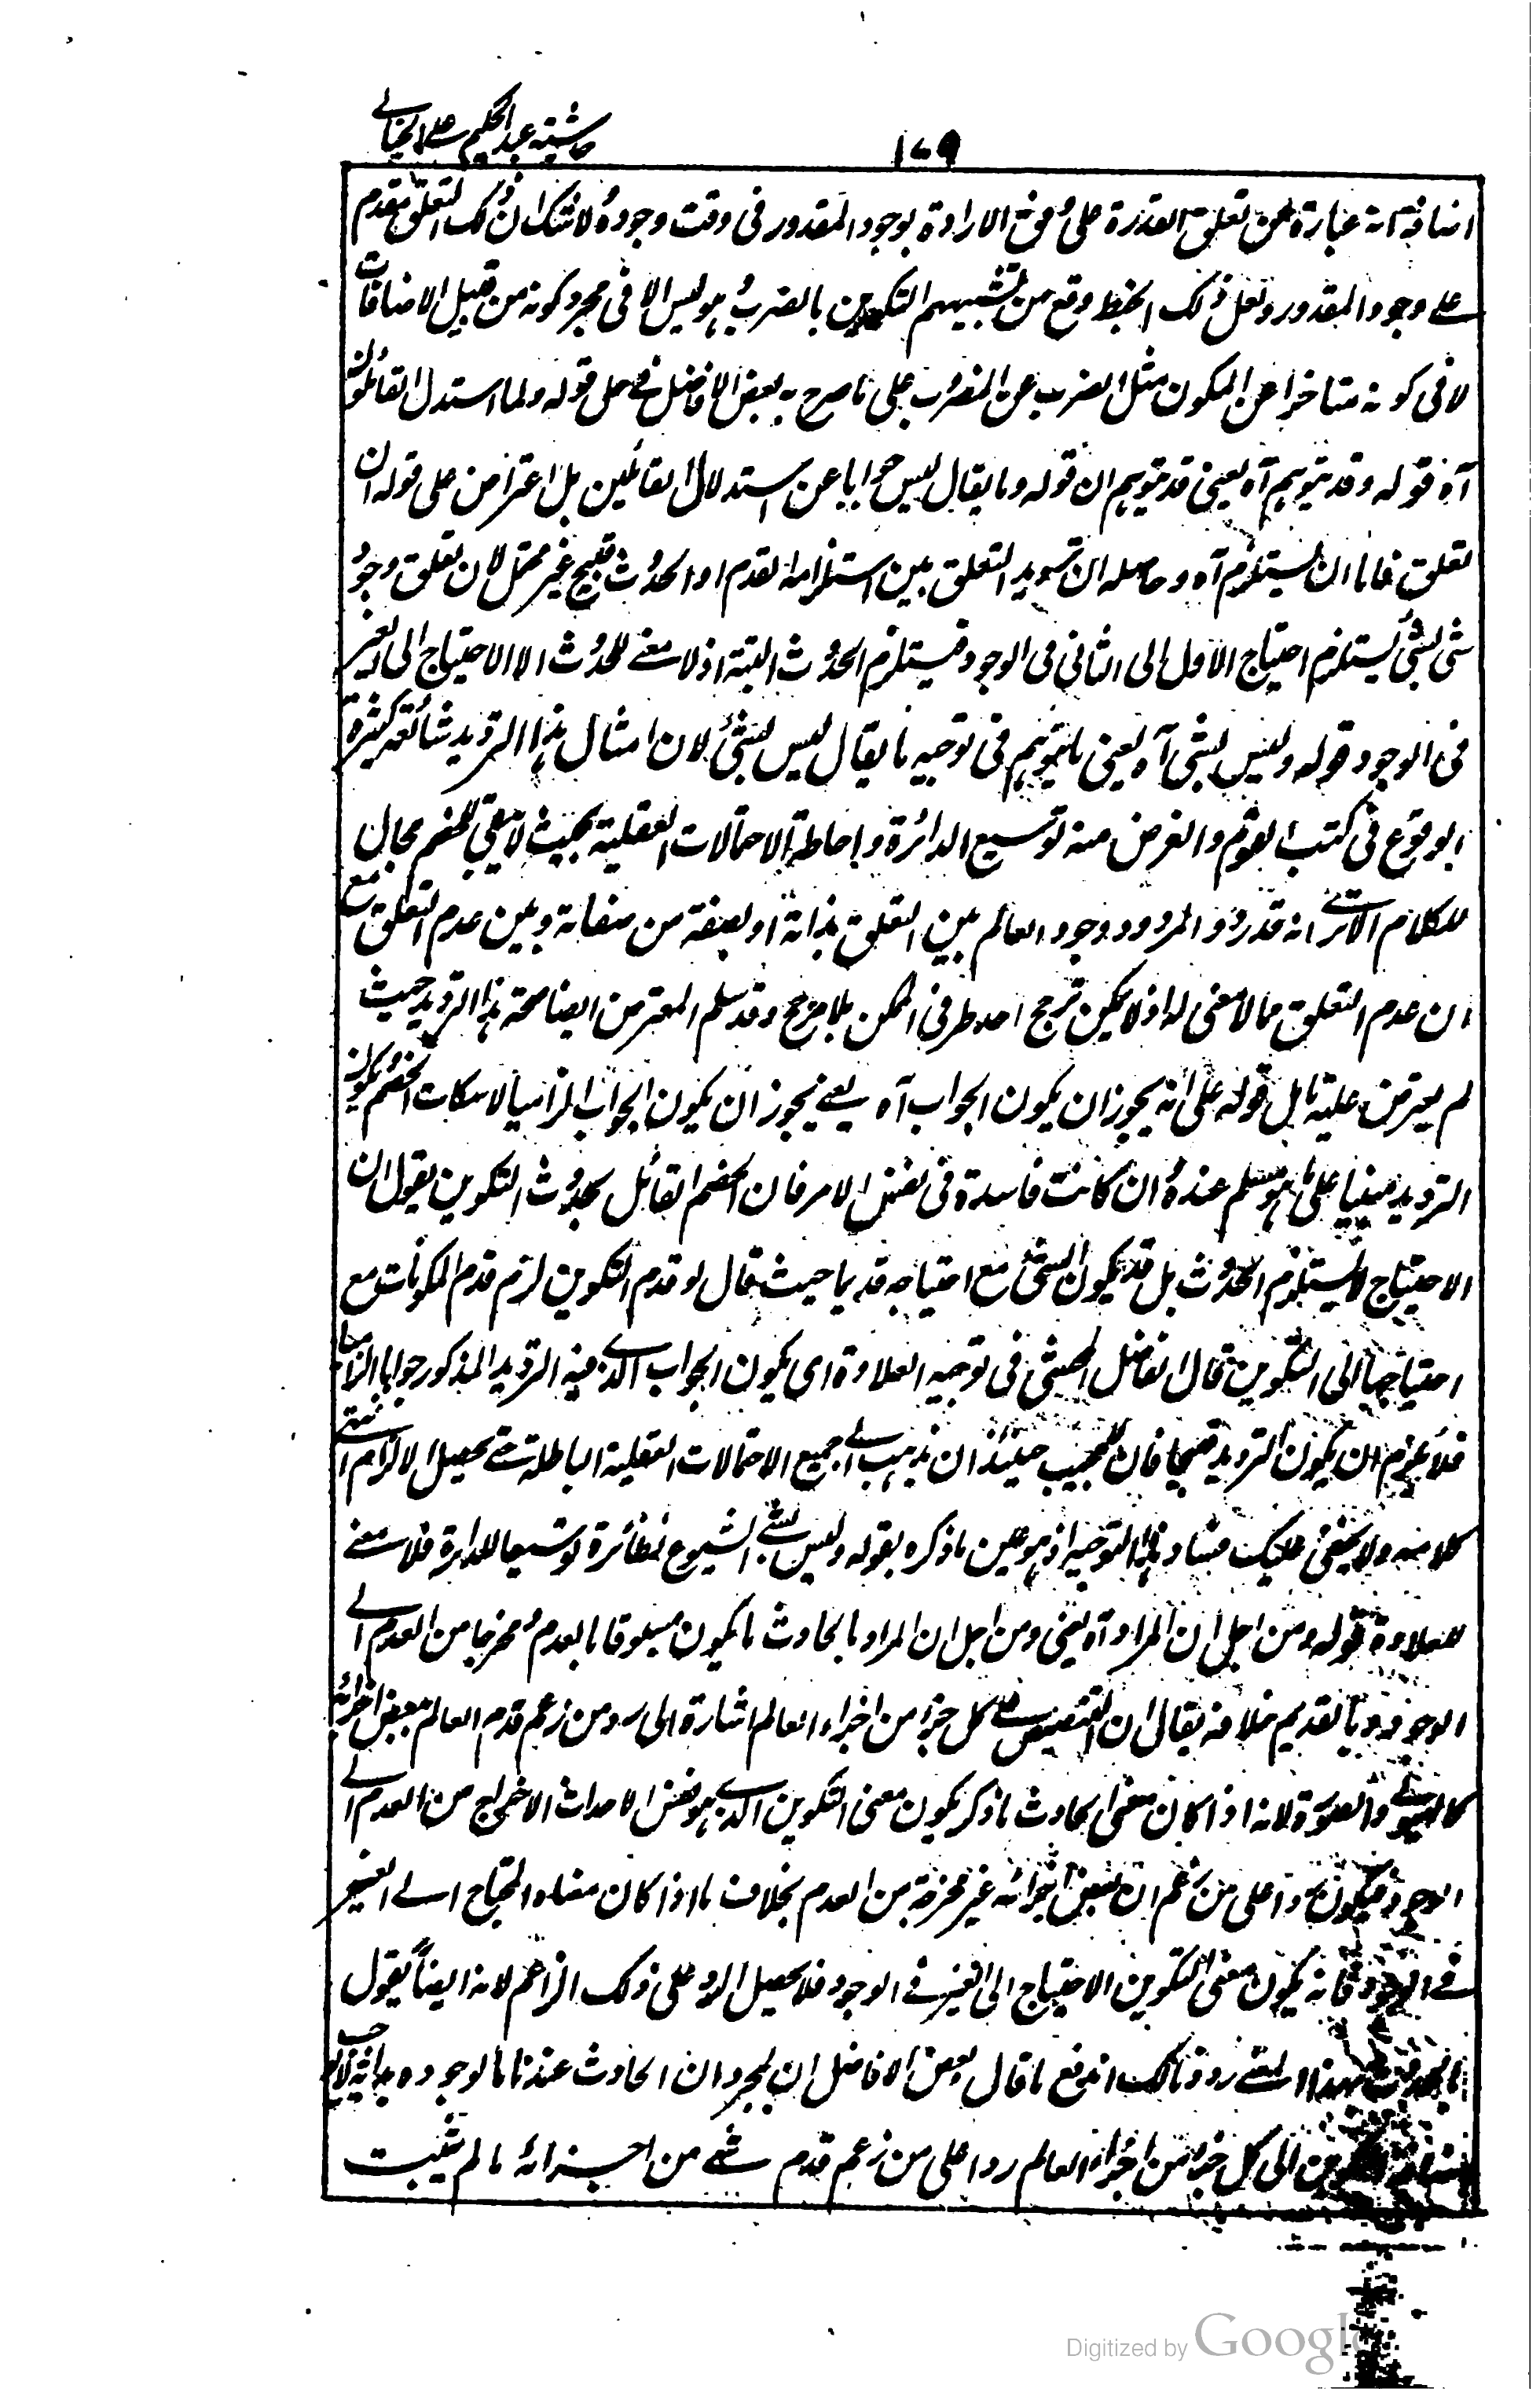 حاشیه عبد الحكیم علی الخیالی
١٧٩
اضافة انه عبارة عن تعلق القدرة علی وفق الارادة بوجود المقدور فی وقت وجوده ولا شك ان ذلك التعلق مقدم
علی وجود المقدور ولعل ذلك الخبط وقع من تشبیههم التكوین بالضرب وهو لیس الا فی مجرد كونه من قبیل الاضافات
لا فی كونه متاخرا عن المكون مثل الضرب عن المضروب علی ما صرح به بعض الافاضل فی حل قوله ولما استدل القائلون
آه قوله وقد یتوهم آه یعنی قد یتوهم ان قوله وما یقال لیس جوابا عن استدلال القائلین بل اعتراض علی قوله ان
تعلق فاما ان یستلزم آه وحاصله ان تردید التعلق بین استلزامه القدم او الحدوث قبیح غیر محتمل لان تعلق وجود
شی بشیٔ یستلزم احتیاج الاول الی الثانی فی الوجود فیستلزم الحدوث البتة اذ لا معنی للحدوث الا الاحتیاج الی الغیر
فی الوجود قوله ولیس بشی آه یعنی ما یتوهم فی توجیه ما یقال لیس بشیٔ لان امثال هذا التردید شائعة كثیرة
الوقوع فی كتب القوم والغرض منه توسیع الدائرة واحاطة الاحتمالات العقلیة بحیث لا یبقی للخصم مجال
للكلام الا تری انه قد ردد المردود وجود العالم بین التعلق بذاته او بصفة من صفاته وبین عدم التعلق مع
ان عدم التعلق مما لا معنی له اذ لا یمكن ترجح احد طرفی الممكن بلا مرجح وقد سلم المعترض ایضا صحة هذا التردید حیث
لم یعترض علیه تامل قوله علی انه یجوز ان یكون الجواب آه یعنی یجوز ان یكون الجواب الزامیا لاسكات الخصم ویكون
التردید مبنیا علی ما هو مسلم عنده وان كانت فاسدة فی نفس الامر فان الخصم القائل بحدوث التكوین یقول ان
الاحتیاج لا یستلزم الحدوث بل قد یكون الشیٔ مع احتیاجه قدیما حیث قال لو قدم التكوین لزم قدم المكونات مع
احتیاجها الی التكوین قال الفاضل المحشی فی توجیه العلاوة ای یكون الجواب الذی فیه التردید المذكور جوابا الزامیا
فلا یلزم ان یكون التردید قبیحا فان للمجیب حینئذ ان یذهب الی جمیع الاحتمالات العقلیة الباطلة حتی یحصل الالزام انتهی
كلامه ولا یخفی علیك فساد هذا التوجیه اذ هو عین ما ذكره بقوله ولیس بشی لشیوع نظائره توسیعا للدائرة فلا معنی
للعلاوة قوله ومن اجل ان المراد آه یعنی ومن اجل ان المراد بالحادث ما یكون مسبوقا بالعدم ومخرجا من العدم الی
الوجود وبالقدیم خلافه یقال ان التنصیص علی كل جزء من اجزاء العالم اشارة الی رد من زعم قدم العالم ببعض اجزائه
كالهیولی والصورة لانه اذا كان معنی الحادث ما ذكر یكون معنی التكوین الذی هو نفس الاحداث الاخراج من العدم الی
الوجود فیكون ردا علی من زعم ان بعض اجزائه غیر مخرجة من العدم بخلاف ما اذا كان معناه المحتاج الی الغیر
فی الوجود فانه یكون معنی التكوین الاحتیاج الی الغیر فی الوجود فلا یحصل الرد علی ذلك الزاعم لانه ایضاً یقول
بالحدوث بهذا المعنی وبذلك اندفع ما قال بعض الافاضل ان بمجرد ان الحادث عندنا ما لوجوده بدایة
التكوین الی كل جزء من اجزاء العالم ردا علی من زعم قدم شی من اجزائه ما لم یثبت
Digitized by Google